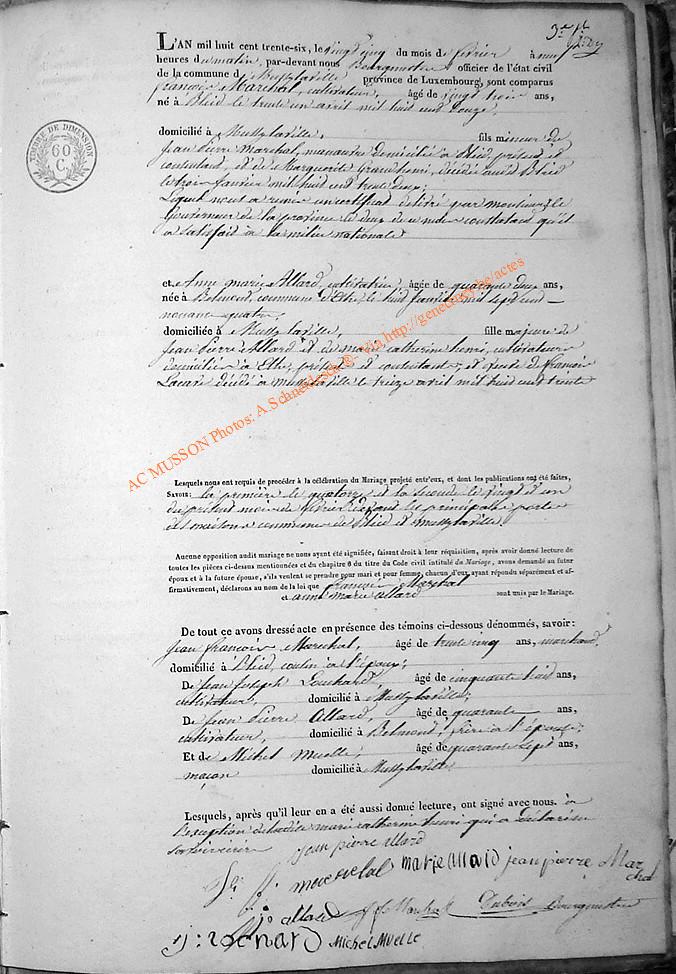 3e. 
L'AN mil huit cent trente-six, le vingt cinq du mois de février à neuf
heures du matin, par-devant nous Bourgmestre officier de l'état civil
de la commune d Mussylaville, province de Luxembourg, sont comparus
françois Marechal, cultivateur, âgé de vingt trois ans,
né à Bleid le trente un avril mil huit cent douze,
domicilié à Mussylaville, fils mineur de
Jean Pierre Marechal, manœuvre domicilié à Bleid, présent et
consentant, et de Marguerite Grandhenri, décédée audit Bleid
le trois janvier mil huit cent trente deux;
Lequel nous a remis un certificat délivré par monsieur le
Gouverneur de la province le deux de ce mois constatant qu'il
a satisfait à la milice nationale
et Anne marie Allard, cultivatrice, âgée de quarante deux ans,
née à Belmont, commune d'Ethe le huit janvier mil sept cent
nonante quatre,
domiciliée à Mussylaville, fille majeure de
Jean Pierre Allard et de marie catherine henri, cultivateurs
domiciliés à Ethe, présents et consentants, et veuve de François
décédé à mussylaville le treize avril mil huit cent trente
Lesquels nous ont requis de procéder à la célébration du Mariage projeté entr'eux, et dont les publications ont été faites,
SAVOIR: la première le quatorze et la seconde le vingt et un
du présent mois de février devant les principales portes
des maisons communes de Bleid et Mussylaville,
Aucune opposition audit mariage ne nous ayant été signifiée, faisant droit à leur réquisition, après avoir donné lecture de
toutes les pièces ci-dessus mentionnées et du chapitre 6 du titre du Code civil intitulé du Mariage, avons demandé au futur
époux et à la future épouse, s'ils veulent se prendre pour mari et pour femme, chacun d'eux ayant répondu séparément et af-
firmativement, déclarons au nom de la loi que françois Marechal
et anne marie allard sont unis par le Mariage.
De tout ce avons dressé acte en présence des témoins ci-dessous dénommés, savoir:
Jean françois Marechal, âgé de trente cinq ans, marchand,
domicilié à Bleid, cousin à l'époux;
De Jean Joseph âgé de cinquante huit ans,
cultivateur, domicilié à Mussylaville;
De Jean Pierre Allard, âgé de quarante ans,
cultivateur, domicilié à Belmont, frère à l'épouse;
Et de Michel Muelle, âgé de quarante sept ans,
maçon domicilié à Mussylaville
Lesquels, après qu'il leur en a été aussi donné lecture, ont signé avec nous. à
l'exception de ladite marie catherine henri qui a déclaré ne
savoir écrire jean pierre allard
marechal marie allard jean pierre Mar
chal
allard Dubois Bourgmestre
Michel Muelle
TIMBRE DE DIMENSION
60
C.
AC MUSSON Photos: A.Schneidesch ©- Via http://geneduvy.be/actes